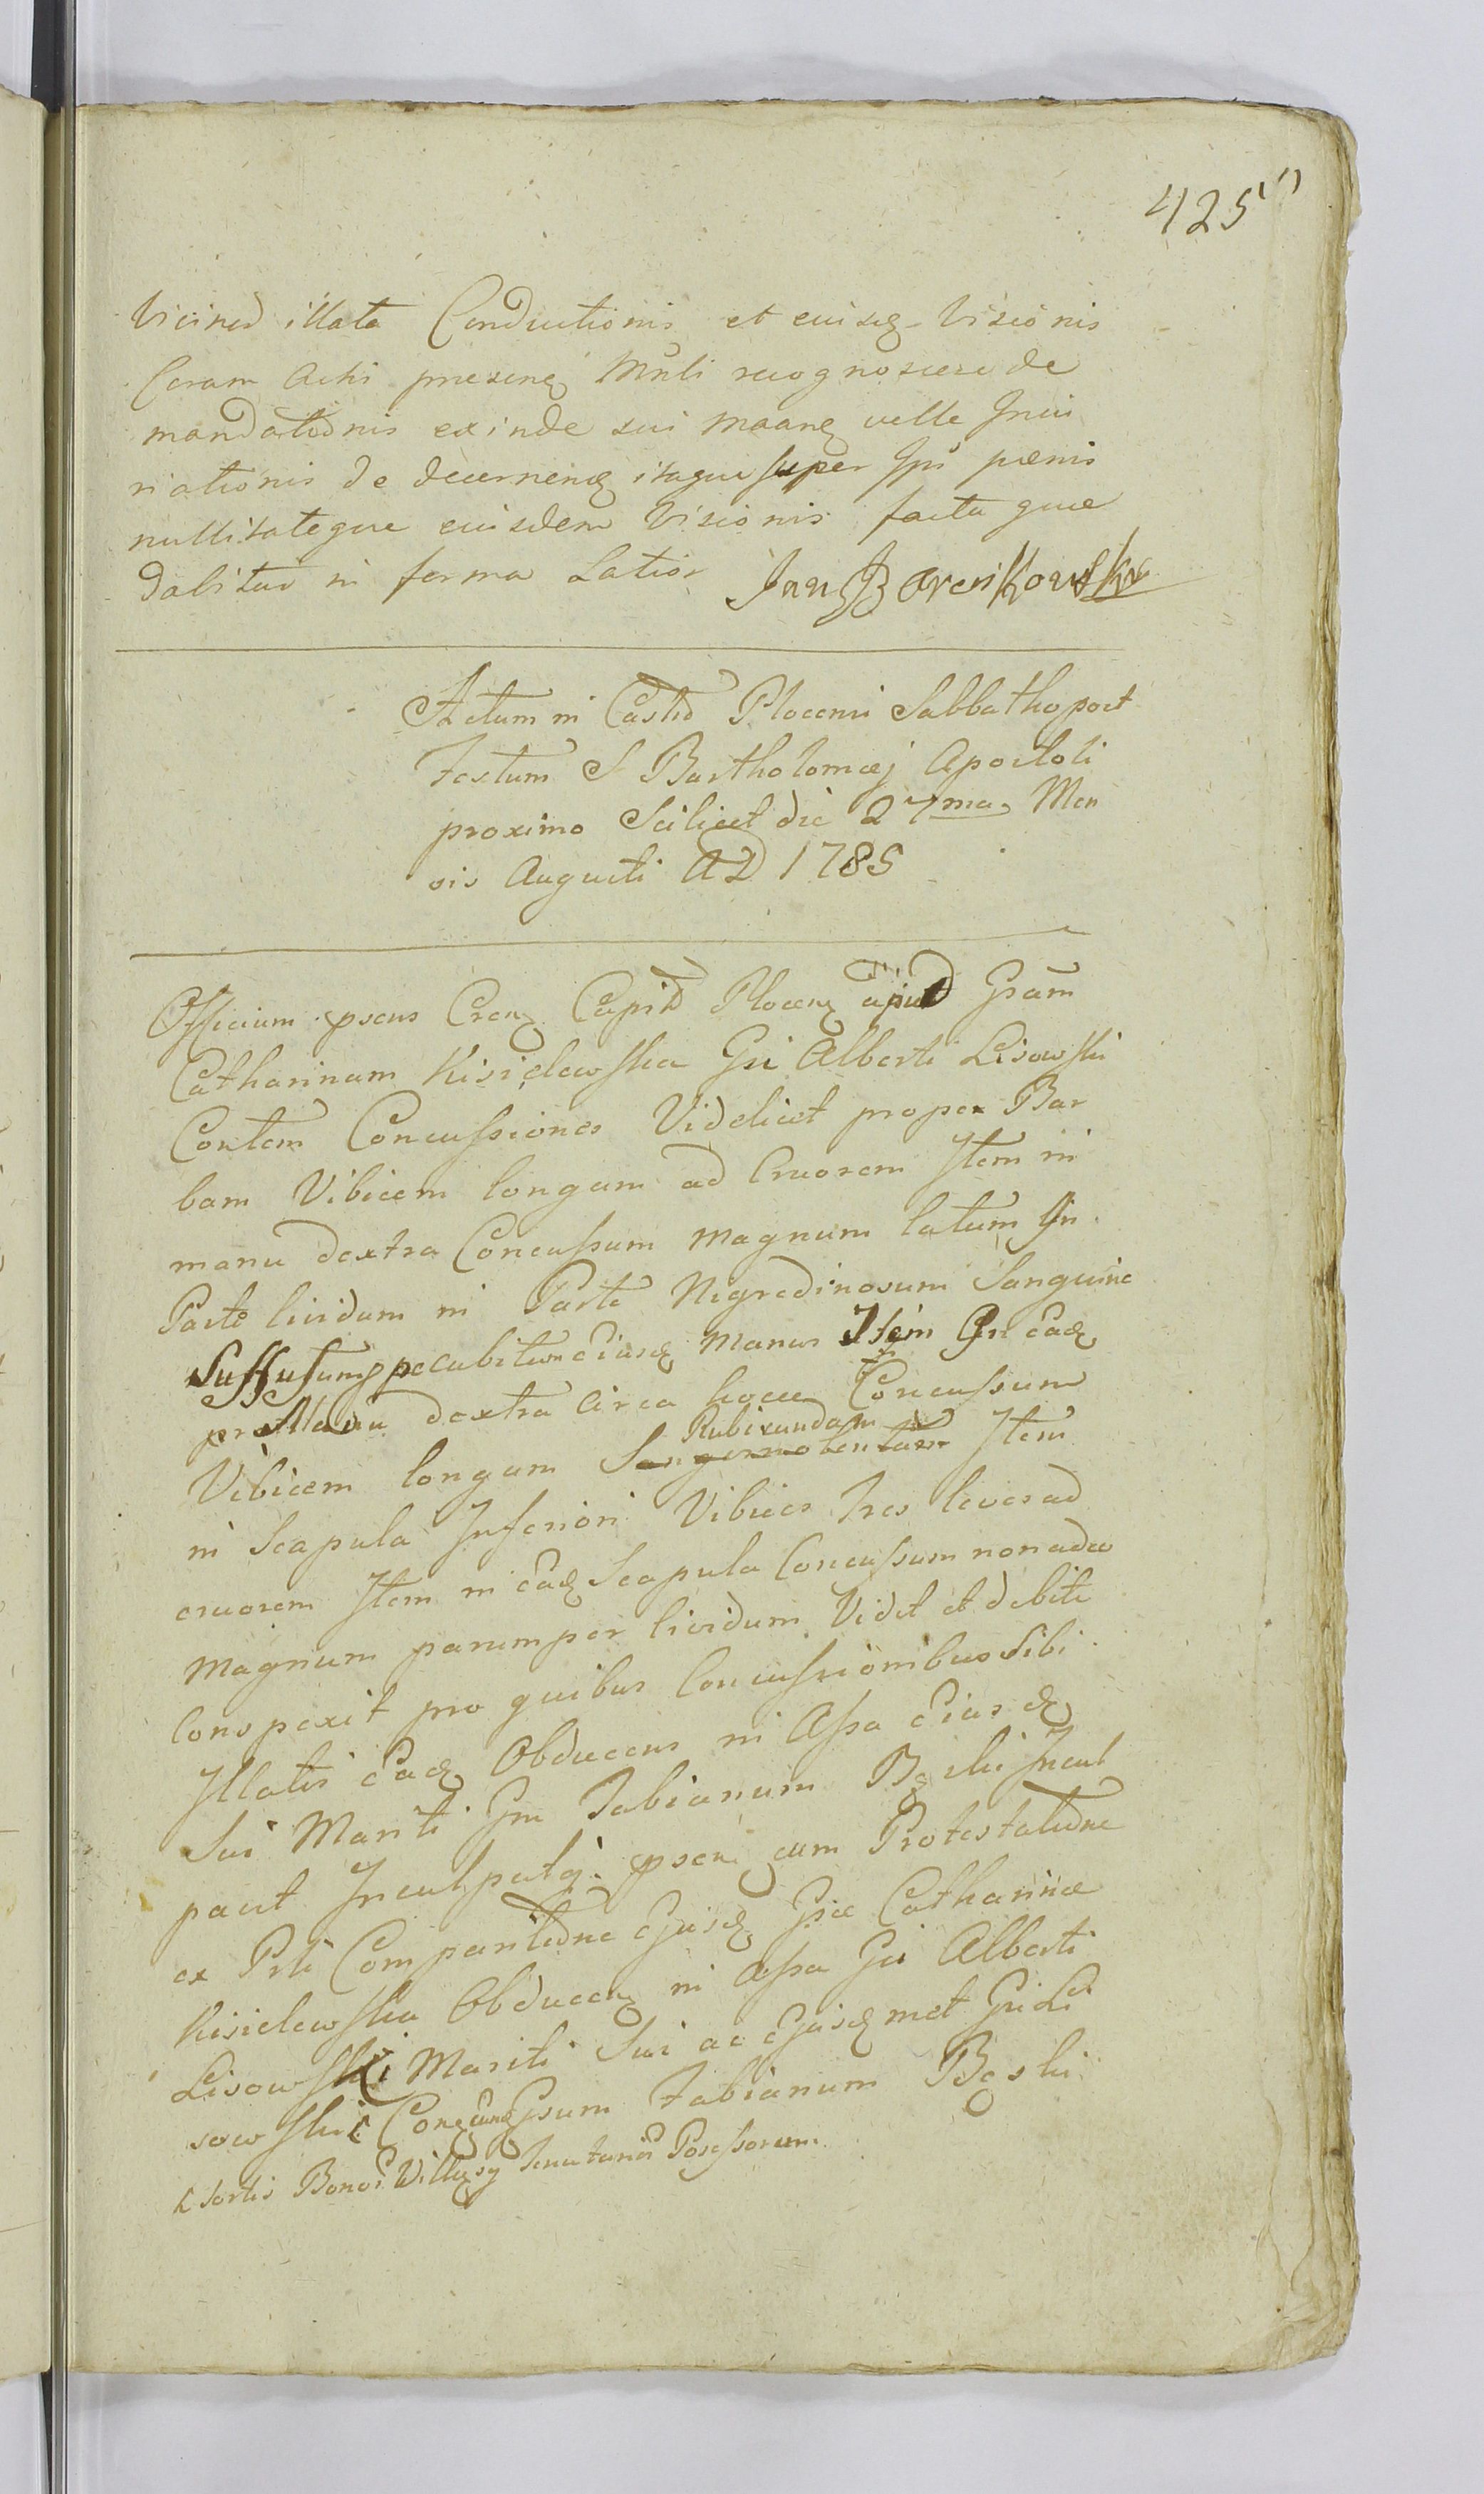 425
Vicined illata Conductionis et eiusq Visionis
Coram Actis presenq Mnli recognoscere de
mandationis exinde sui maanq velle Inui
riationis de decernenq itaque super Ipsi pænis
nullitateque euisdem Visionis facta quæ
dabitur in forma Latior Jan Barcikowski
Actum in Castro Plocensi Sabbatho post
Festum S Bartholomæj Apostoli
proximo Scilicet die 27ma Men
sis Augusti AD 1785
Officium psens Crenq Capitl Plocenq apud Gsam
Catharinam Kisielewska Gsi Alberti Lisowski
Contem Concussiones Videlicet prope Bar
bam Vibicem longam ad Cruorem Item in
manu dextra Concussum magnum latum In
Parte lividum in Parte Nigredinosum Sanguine
Suffusum ppe cubitum Eiusq manus Item In eadq
pr Manu dextra circa hocce Concussum
Rubicundam
Vibicem longam Sangvinolentam Item
in Scapula Inferiori Vibices tres leves ad
cruorem Item in eadq Scapula Concussum non adeo
magnum parumper lividum Vidit et debite
Conspexit pro quibus Concussionibus Sibi
Illatis eadq Obducens in Assa Eiusq
Sui Mariti Gsu Fabianum Bęski Incul
pavit Inculpatq psens cum Protestatione
ex Prti Comparitione Ejusq Gsæ Catharinæ
Kisielewska Obducenq in Assa Gsi Alberti
Lisowski Mariti Sui ac Ejusq met Gsi Li
sowski Conq Gsum Fabianum Bęski
Sortis Bonor Villæ Tenutarior Possessorum